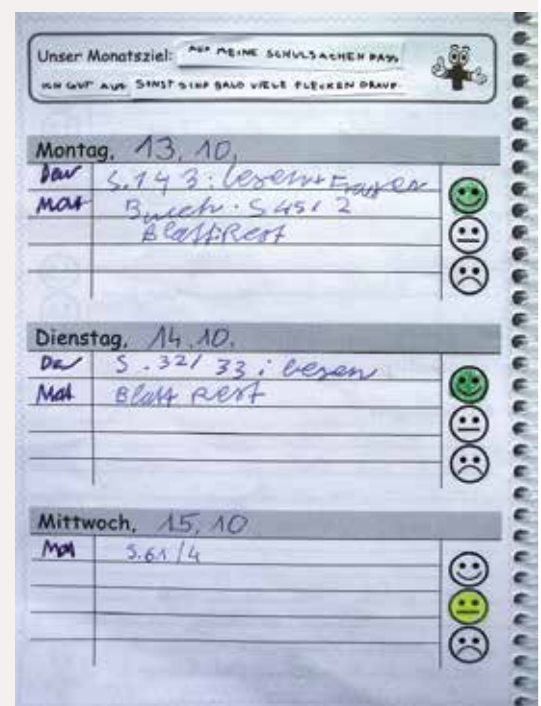 Unser Monatsziel: AUF MEINE SCHULSACHEN PASS
ICH GUT AUF SONST SIND BALD VIELE FLECKEN DRAUF.
Montag, 13.10.
S. 143: lesen + Fragen
Mat Buch. S 45/2
Blatt Rest
Dienstag, 14.10.
De S. 32/33: lesen
Mat Blatt Rest
Mittwoch, 15.10
Mat S. 61/4